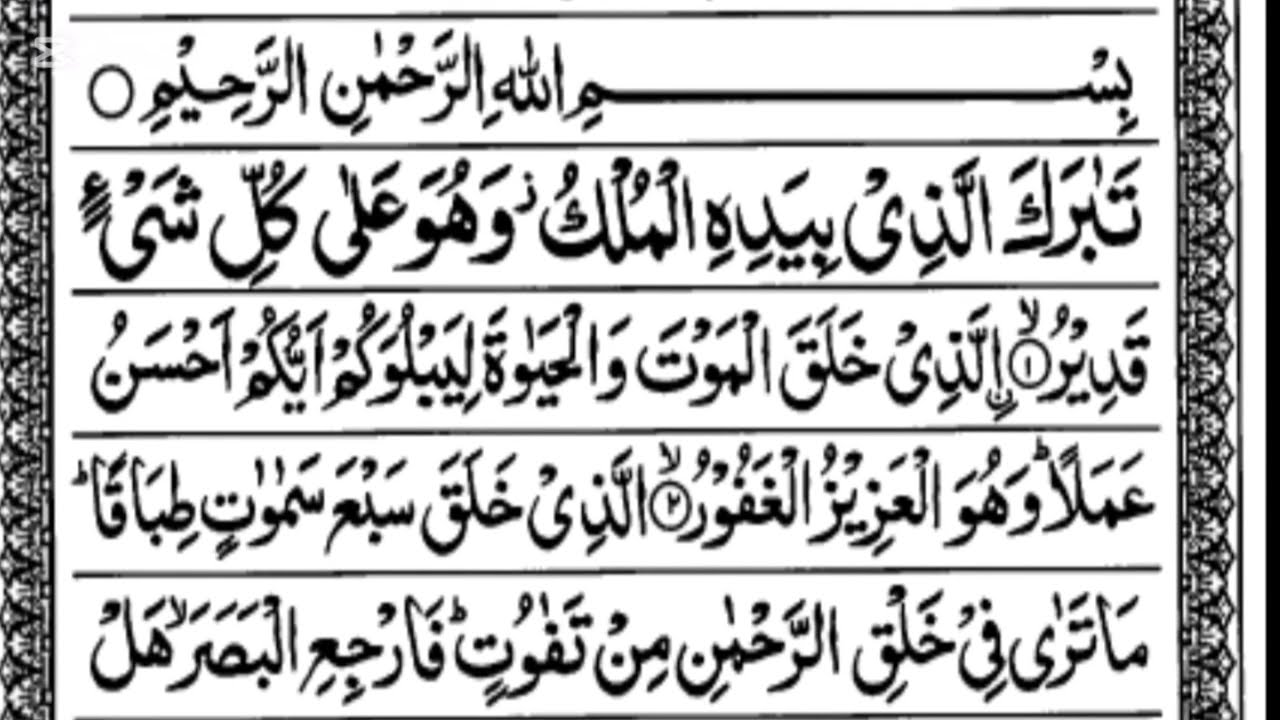 بِسْمِ اللهِ الرَّحْمٰنِ الرَّحِيْمِ ○
تَبٰرَكَ الَّذِيْ بِيَدِهِ الْمُلْكُ ز وَهُوَ عَلٰى كُلِّ شَيْءٍ
قَدِيْرُ ۙ﴿۱﴾ اِۨلَّذِيْ خَلَقَ الْمَوْتَ وَالْحَيٰوةَ لِيَبْلُوَكُمْ اَيُّكُمْ اَحْسَنُ
عَمَلًا ؕ وَهُوَ الْعَزِيْزُ الْغَفُوْرُ ۙ﴿۲﴾ الَّذِيْ خَلَقَ سَبْعَ سَمٰوٰتٍ طِبَاقًا ؕ
مَا تَرٰى فِيْ خَلْقِ الرَّحْمٰنِ مِنْ تَفٰوُتٍ ؕ فَارْجِعِ الْبَصَرَ ۙ هَلْ